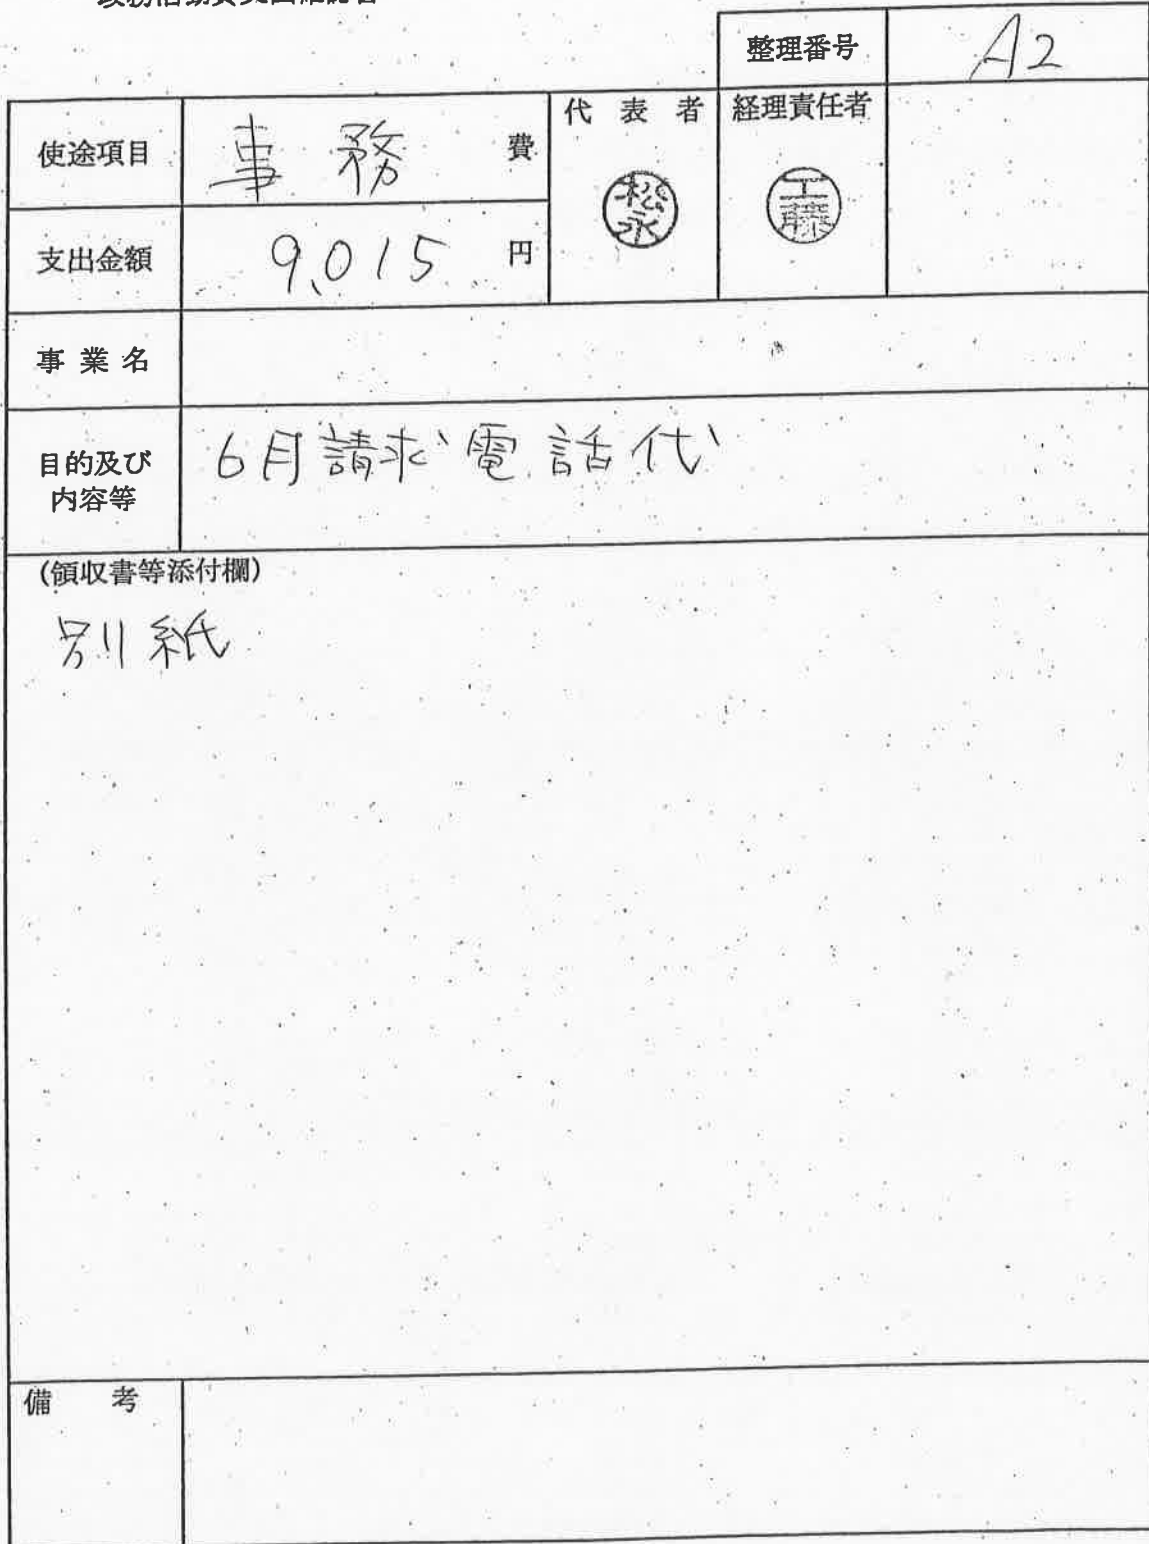 整理番号 A2
使途項目 事務費
代表者 経理責任者
松永 工藤
支出金額 9,015円
事業名
目的及び内容等 6月請求電話代
(領収書等添付欄)
別紙
備考